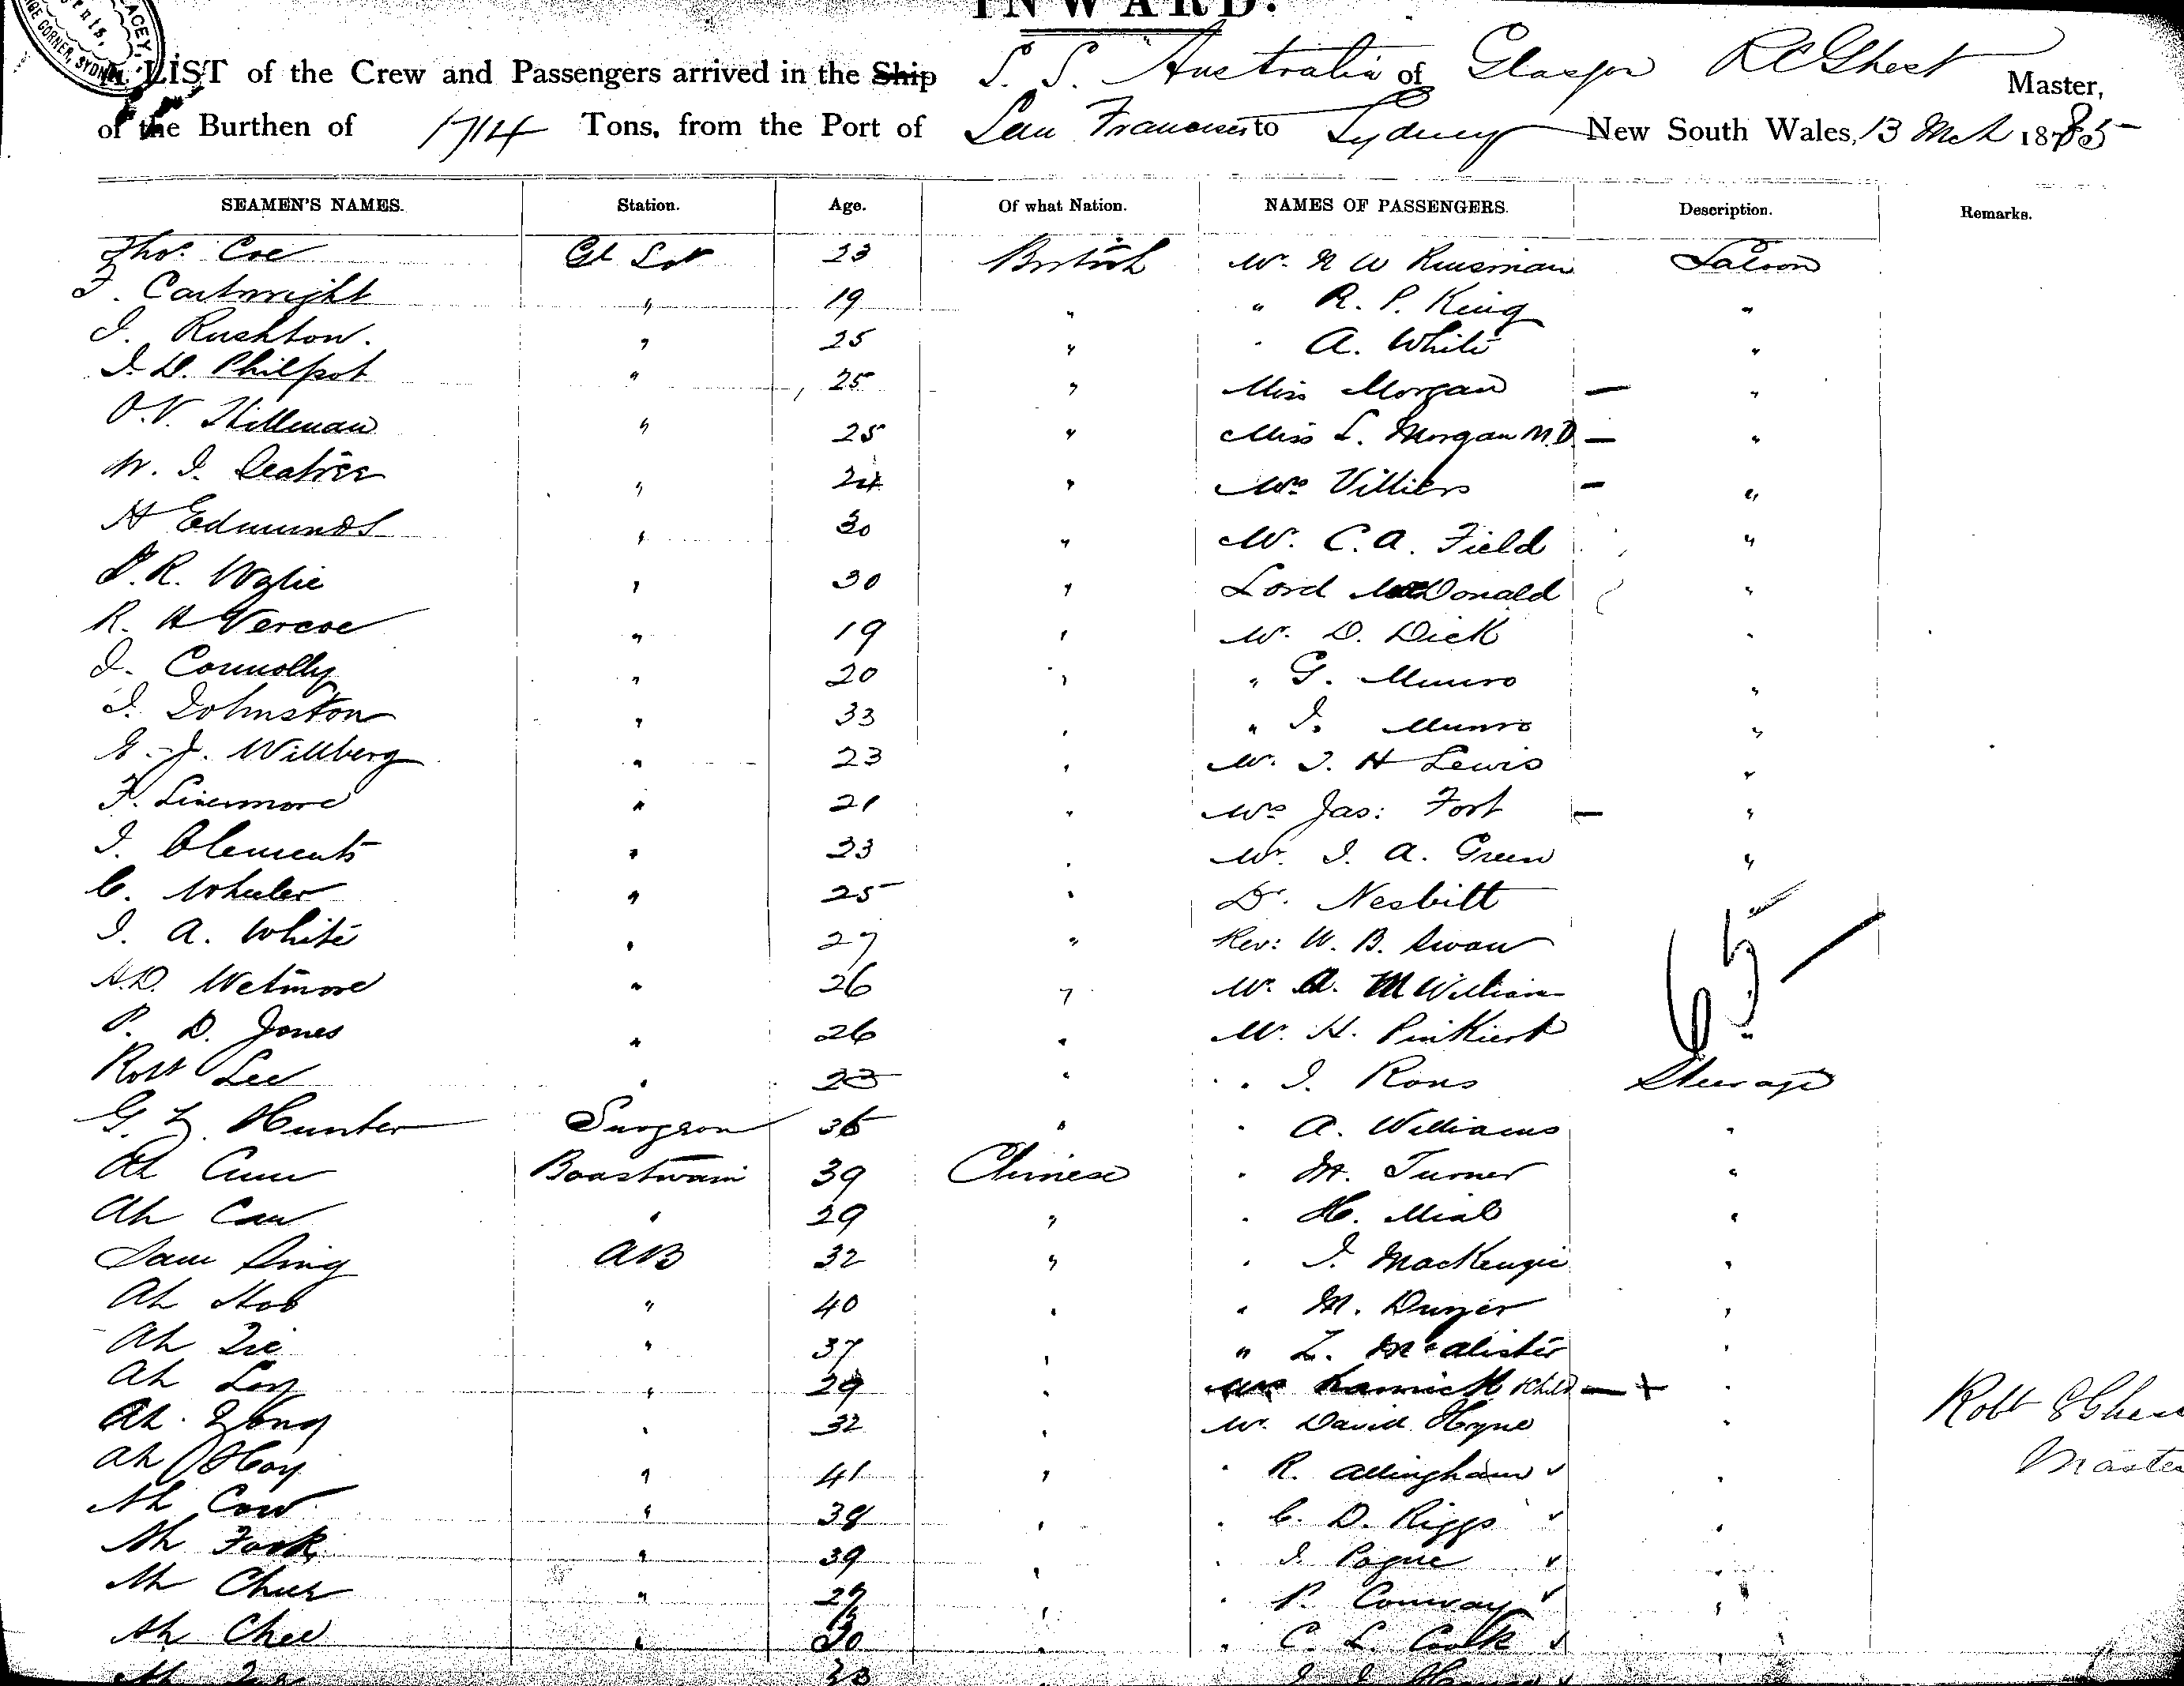 ACEY,
ents,
GE CORNER, SYDN
INWARD.
A LIST of the Crew and Passengers arrived in the Ship S. S. Australia of Glasgow R Ghest Master,
of the Burthen of 1714 Tons, from the Port of San Francisco to Sydney New South Wales, 13 Mch 1885
SEAMEN'S NAMES. Station. Age. Of what Nation. NAMES OF PASSENGERS. Description. Remarks.
Thos. Coe 23 British Mr. N W Kinsman Saloon
F. Cartwright " 19 " " R. P. King "
J. Rushton. " 25 " " A. White "
J. D. Philpot " 25 " Miss Morgan — "
O. V. Hillman " 25 " Miss L. Morgan M.D. — "
W. J. " 24 " Mrs Villiers — "
H Edmunds " 30 " Mr. C. A. Field "
J. R. Wylie " 30 " Lord McDonald "
R. H Vercoe " 19 " Mr. D. Dick "
J. Connolly " 20 " " G. Munro "
J. Johnston " 33 " " J. Munro "
E. J. Willberg " 23 " Mr. J. H Lewis "
F. Livermore " 21 " Mrs Jas: Fort — "
J. Clements " 23 " Mr. J. A. Green "
C. Wheeler " 25 " Dr. Nesbitt
J. A. White " 27 " Rev: W. B. Swan
H. D. Wetmore " 26 " Mr. A. McWilliam 65
P. D. Jones " 26 " Mr. H.
Robt Lee " 23 " " J. Rons Steerage
G. Hunter Surgeon 36 " " A. Williams "
Ah Cum Boastwain 39 Chinese " M. Turner "
Ah Can " 29 " " H. Mial "
Sam Sing AB 32 " " J. MacKenzie "
Ah Hoo " 40 " " M. Dwyer "
Ah " 37 " " L. McAlister "
Ah Loy " 29 " Mrs &Child — + "
Ah " 32 " Mr. David Hogue "
Ah Hoy " 41 " " R. Allingham "
Ah Cow " 38 " " C. D. Riggs "
Ah Fook " 39 " " J. Pogue "
Ah " 27 " " P. Conway "
Ah Chee " 30 " " C. L. Cook "
Ah 33 " J. J.
Robt Ghest
Master